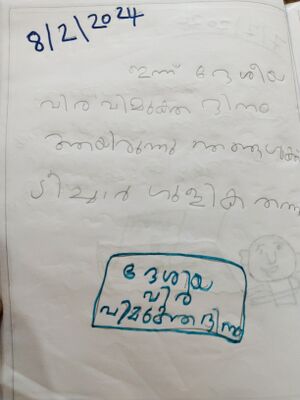 8/2/2024
ഇന്ന് ദേശീയ
വിര വിമുക്ത ദിനം
ആയിരുന്നു ഞങ്ങൾക്ക്
ടീച്ചർ ഗുളിക തന്നു
ദേശിയ
വിര
വിമുക്ത ദിനം